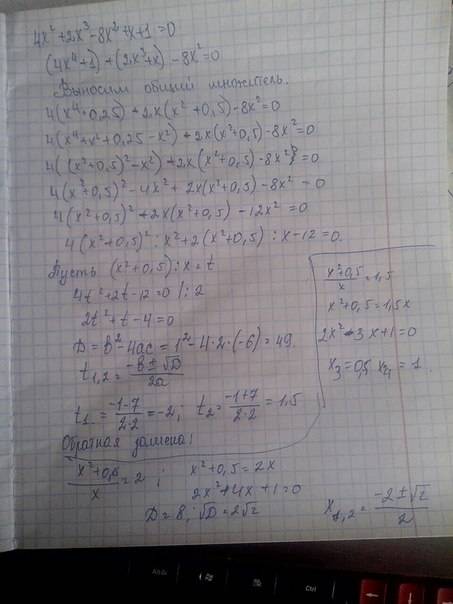 4x² + 2x³ - 8x² + x + 1 = 0
(4x⁴+1) + (2x³+x) - 8x² = 0
Выносим общий множитель.
4(x⁴+0,25) + 2x(x²+0,5) - 8x² = 0
4(x⁴+x²+0,25-x²) + 2x(x²+0,5) - 8x² = 0
4((x²+0,5)²-x²) + 2x(x²+0,5) - 8x² = 0
4(x²+0,5)² - 4x² + 2x(x²+0,5) - 8x² = 0
4(x²+0,5)² + 2x(x²+0,5) - 12x² = 0
4(x²+0,5)² : x² + 2(x²+0,5) : x - 12 = 0.
Пусть (x²+0,5) : x = t
4t² + 2t - 12 = 0 /: 2
2t² + t - 4 = 0
D = b² - 4ac = 1² - 4·2·(-6) = 49.
t₁,₂ = (-b ± √D)/2a
t₁ = (-1-7)/2·2 = -2; t₂ = (-1+7)/2·2 = 1,5
Обратная замена:
(x²+0,5)/x = 2 ; x²+0,5 = 2x
2x²+4x+1 = 0
D = 8; √D = 2√2
x₁,₂ = (-2 ± √2)/2
(x²+0,5)/x = 1,5
x²+0,5 = 1,5x
2x² - 3x + 1 = 0
x₃ = 0,5, x₄ = 1.
Alt
Ctrl